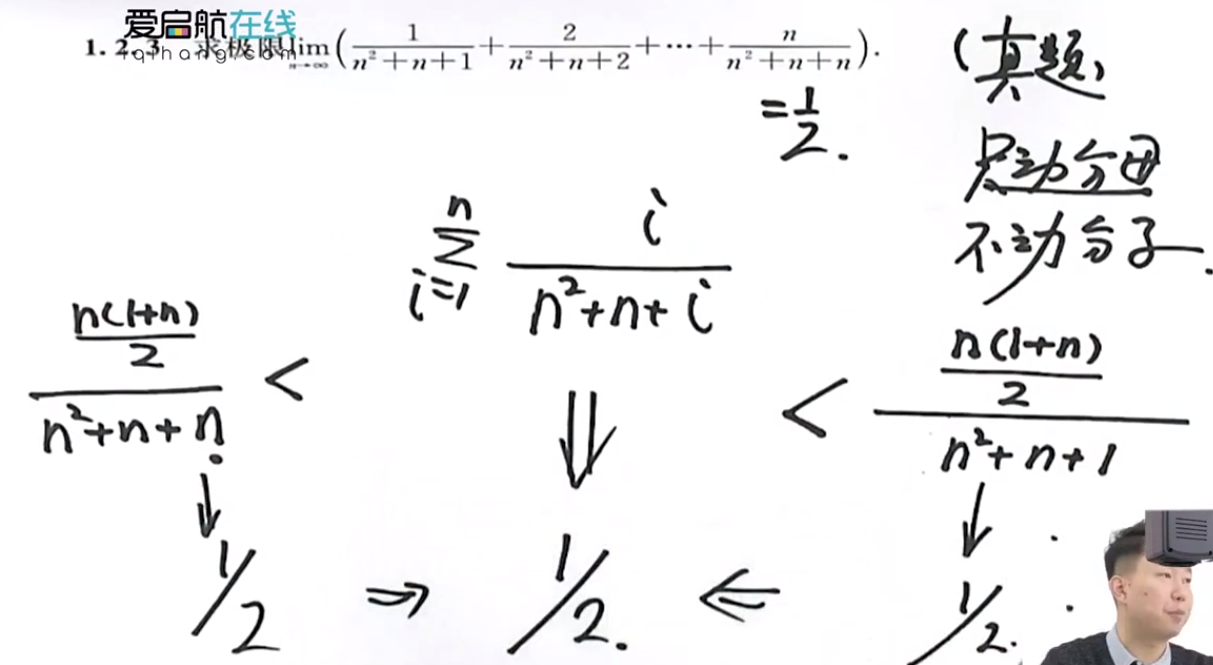 爱启航在线
iqihang.com
1.2.3 求极限 lim n→∞ (1/(n²+n+1) + 2/(n²+n+2) + ⋯ + n/(n²+n+n)).
(真题)
= 1/2.
只动分母
不动分子.
n Σ i=1 i/(n²+n+i)
(n(1+n)/2)/(n²+n+n) < < (n(1+n)/2)/(n²+n+1)
↓ ⇓ ↓
1/2 ⇒ 1/2. ⇐ 1/2.